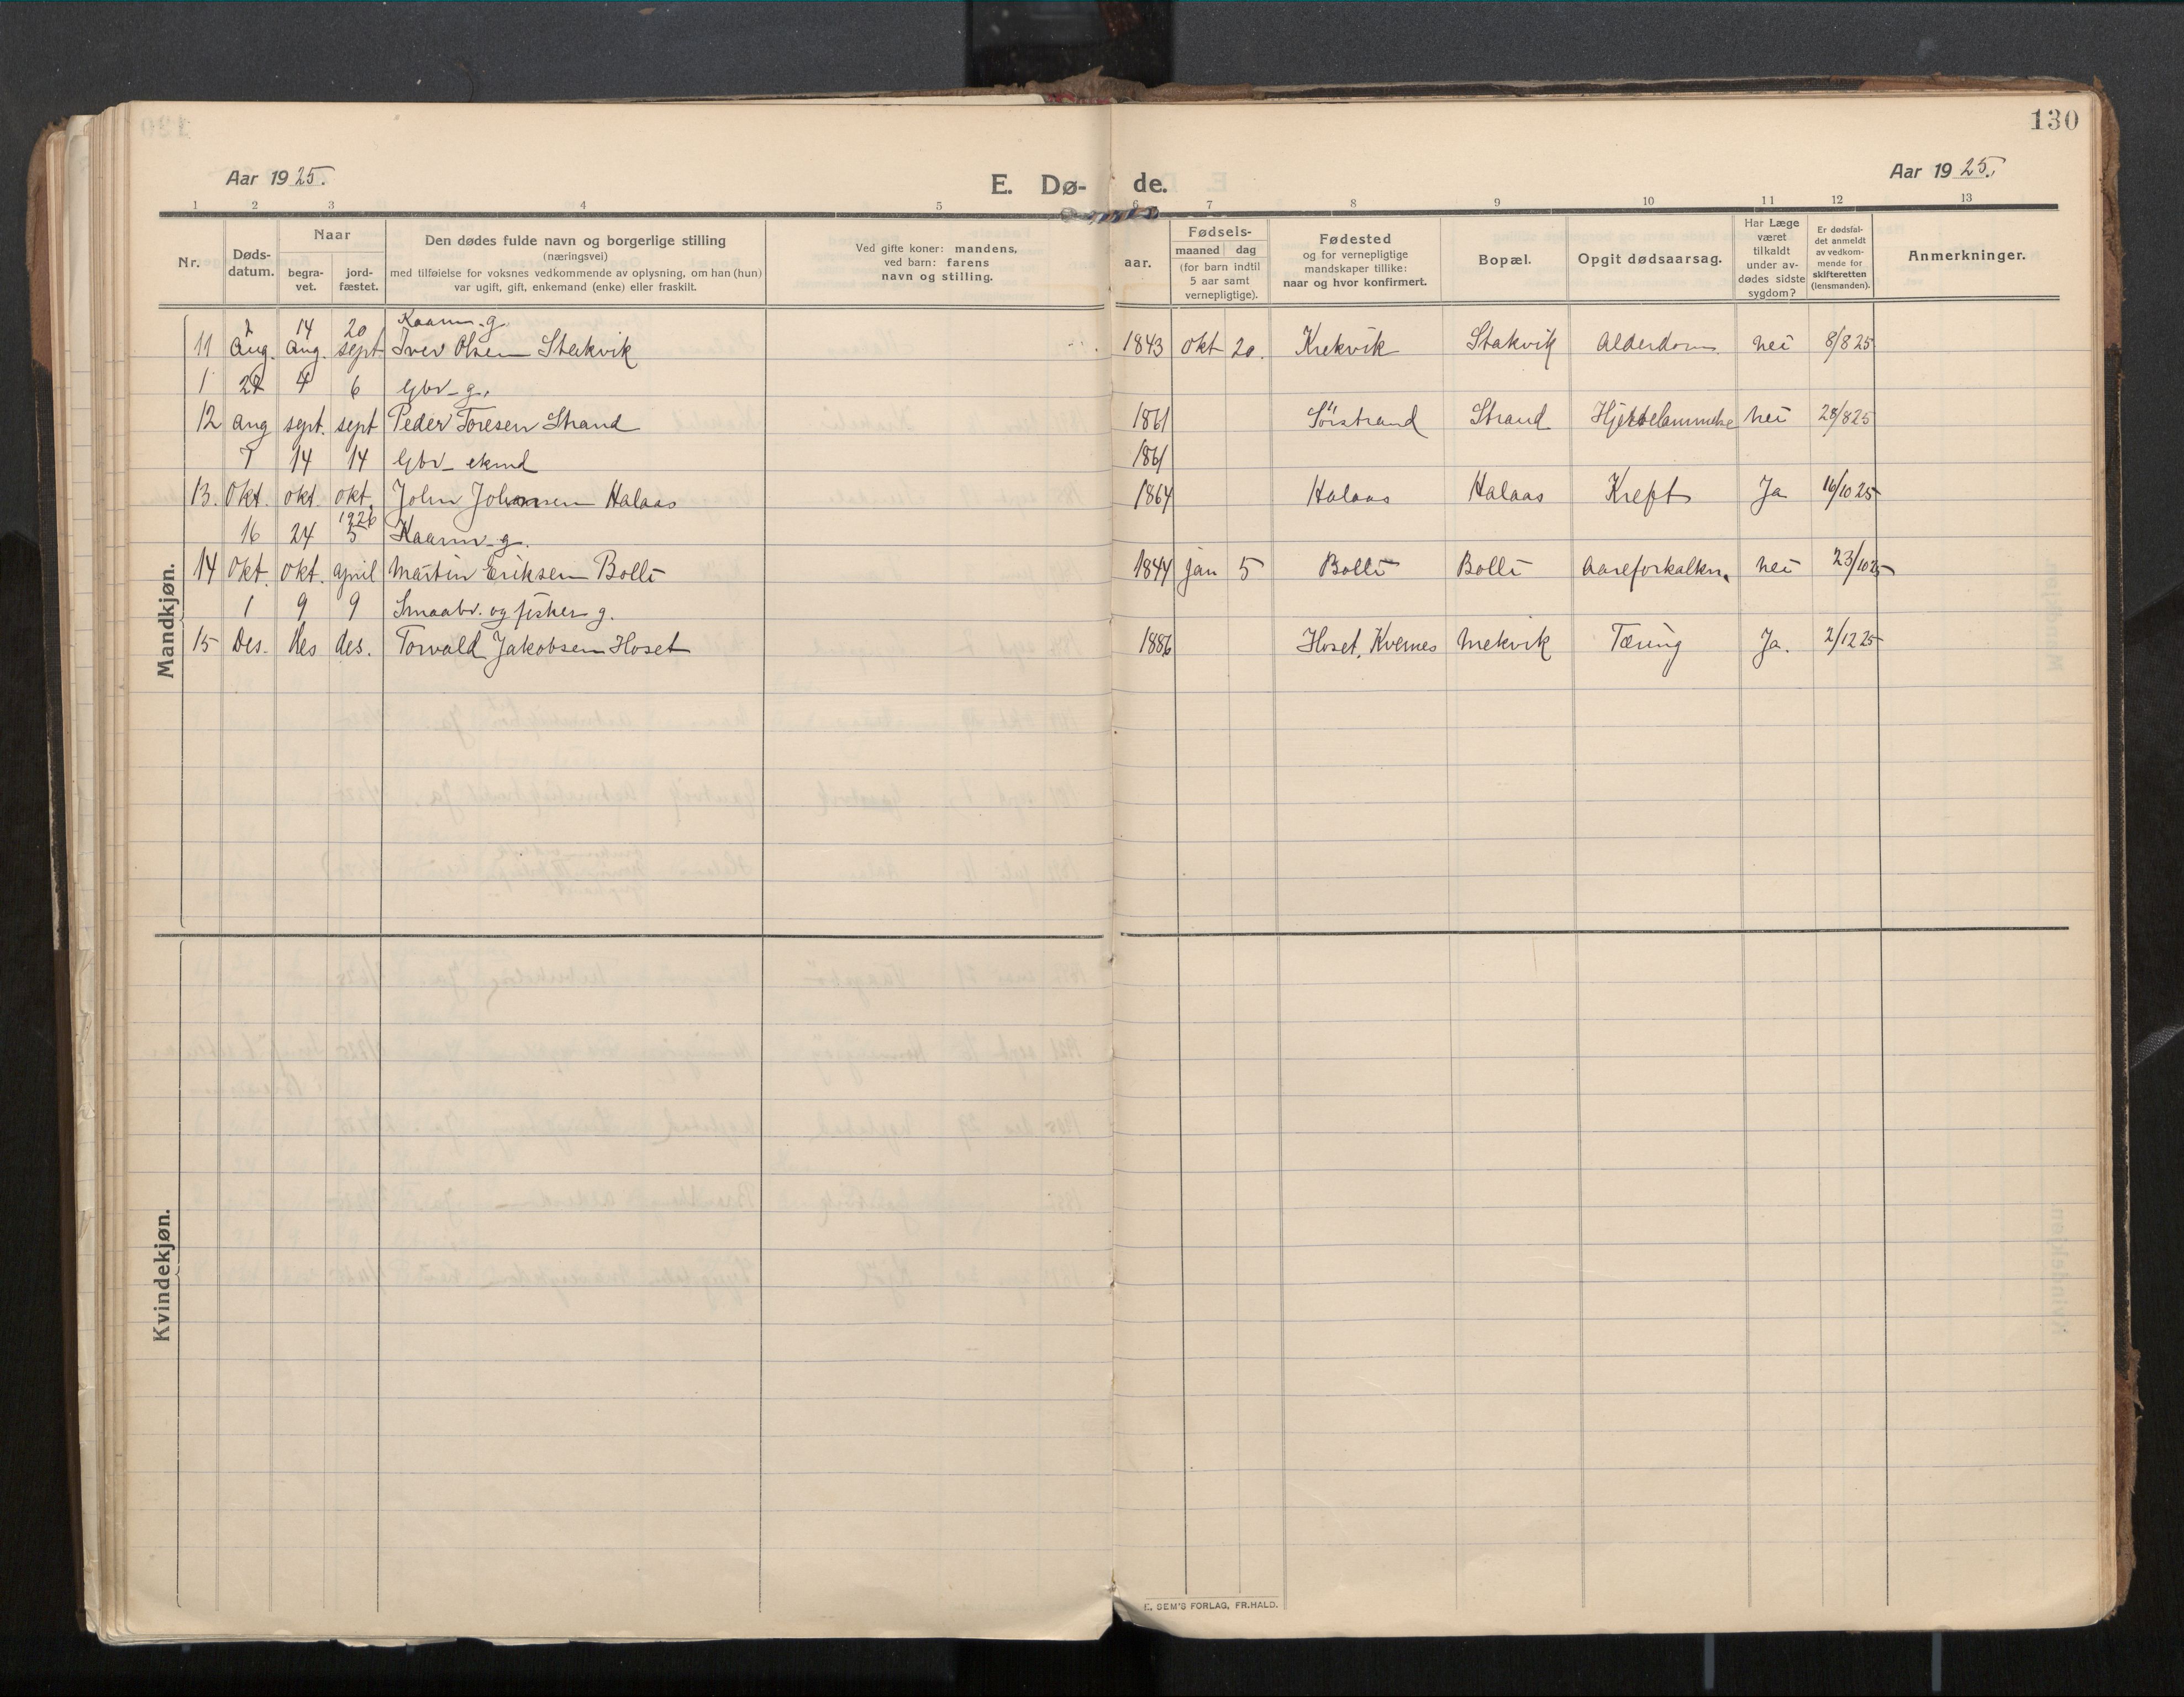 130
Aar 1925. E. Dø- de. Aar 1925.
1 2 3 4 5 6 7 8 9 10 11 12 13
Nr.
Døds-
datum.
Naar
begra-
vet.
jord-
fæstet.
Den dødes fulde navn og borgerlige stilling
(næringsvei)
med tilføielse for voksnes vedkommende av oplysning, om han (hun)
var ugift, gift, enkemand (enke) eller fraskilt.
Ved gifte koner: mandens,
ved barn: farens
navn og stilling.
aar.
Fødsels-
maaned dag
(for barn indtil
5 aar samt
vernepligtige).
Fødested
og for vernepligtige
mandskaper tillike:
naar og hvor konfirmert.
Bopæl.
Opgit dødsaarsag.
Har Læge
været
tilkaldt
under av-
dødes sidste
sygdom?
Er dødsfal-
det anmeldt
av vedkom-
mende for
skifteretten
(lensmanden).
Anmerkninger.
Mandkjøn.
2 14 20 Kaarm. g.
11 Aug. Aug. sept Iver Olsen Stakvik 1843 okt 20. Krekvik Stakvik Alderdom. nei 8/8 25
4 6 Gbr. g.
12 aug sept. sept Peder Toresen Strand 1861 Sörstrand Strand Hjertelammelse nei 28/8 25
7 14 14 Gbr. ekmd 1861
13. Okt. okt. okt. John Johansen Halaas 1864 Halaas Halaas Kreft Ja 16/10 25
1926
16 24 5 Kaarm. g.
14 Okt. okt. april Martin Eriksen Bolli 1844 jan 5 Bolli Bolli Aareforkalkn. nei 23/10 25
1 9 9 Smaabr. og fisker g.
15 Des. des des. Torvald Jakobsen Hoset 1886 Hoset, Kvernes Mekvik Tæring Ja. 2/12 25
Kvindekjøn.
E. SEM'S FORLAG, FR.HALD.